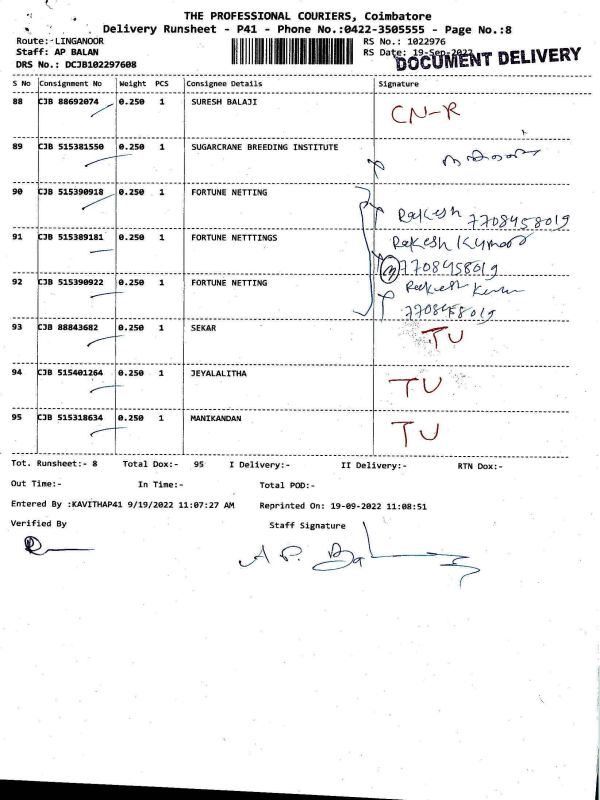 THE PROFESSIONAL COURIERS, Coimbatore
Delivery Runsheet - P41 - Phone No.:0422-3505555 - Page No.:8
Route:-LINGANOOR RS No.: 1022976
Staff: AP BALAN RS Date: 19-Sep-2022
DOCUMENT DELIVERY
DRS No.: DCJB102297608
S No Consignment No Weight PCS Consignee Details Signature
88 CJB 88692074 0.250 1 SURESH BALAJI CN-R
89 CJB 515381550 0.250 1 SUGARCRANE BREEDING INSTITUTE
90 CJB 515390918 0.250 1 FORTUNE NETTING Rakesh 7708458019
91 CJB 515389181 0.250 1 FORTUNE NETTTINGS Rakesh Kumar
7708458019
92 CJB 515390922 0.250 1 FORTUNE NETTING Rakesh Kumar
7708458019
93 CJB 88843682 0.250 1 SEKAR TU
94 CJB 515401264 0.250 1 JEYALALITHA TU
95 CJB 515318634 0.250 1 MANIKANDAN TU
Tot. Runsheet:- 8 Total Dox:- 95 I Delivery:- II Delivery:- RTN Dox:-
Out Time:- In Time:- Total POD:-
Entered By :KAVITHAP41 9/19/2022 11:07:27 AM Reprinted On: 19-09-2022 11:08:51
Verified By Staff Signature
A P. Bal